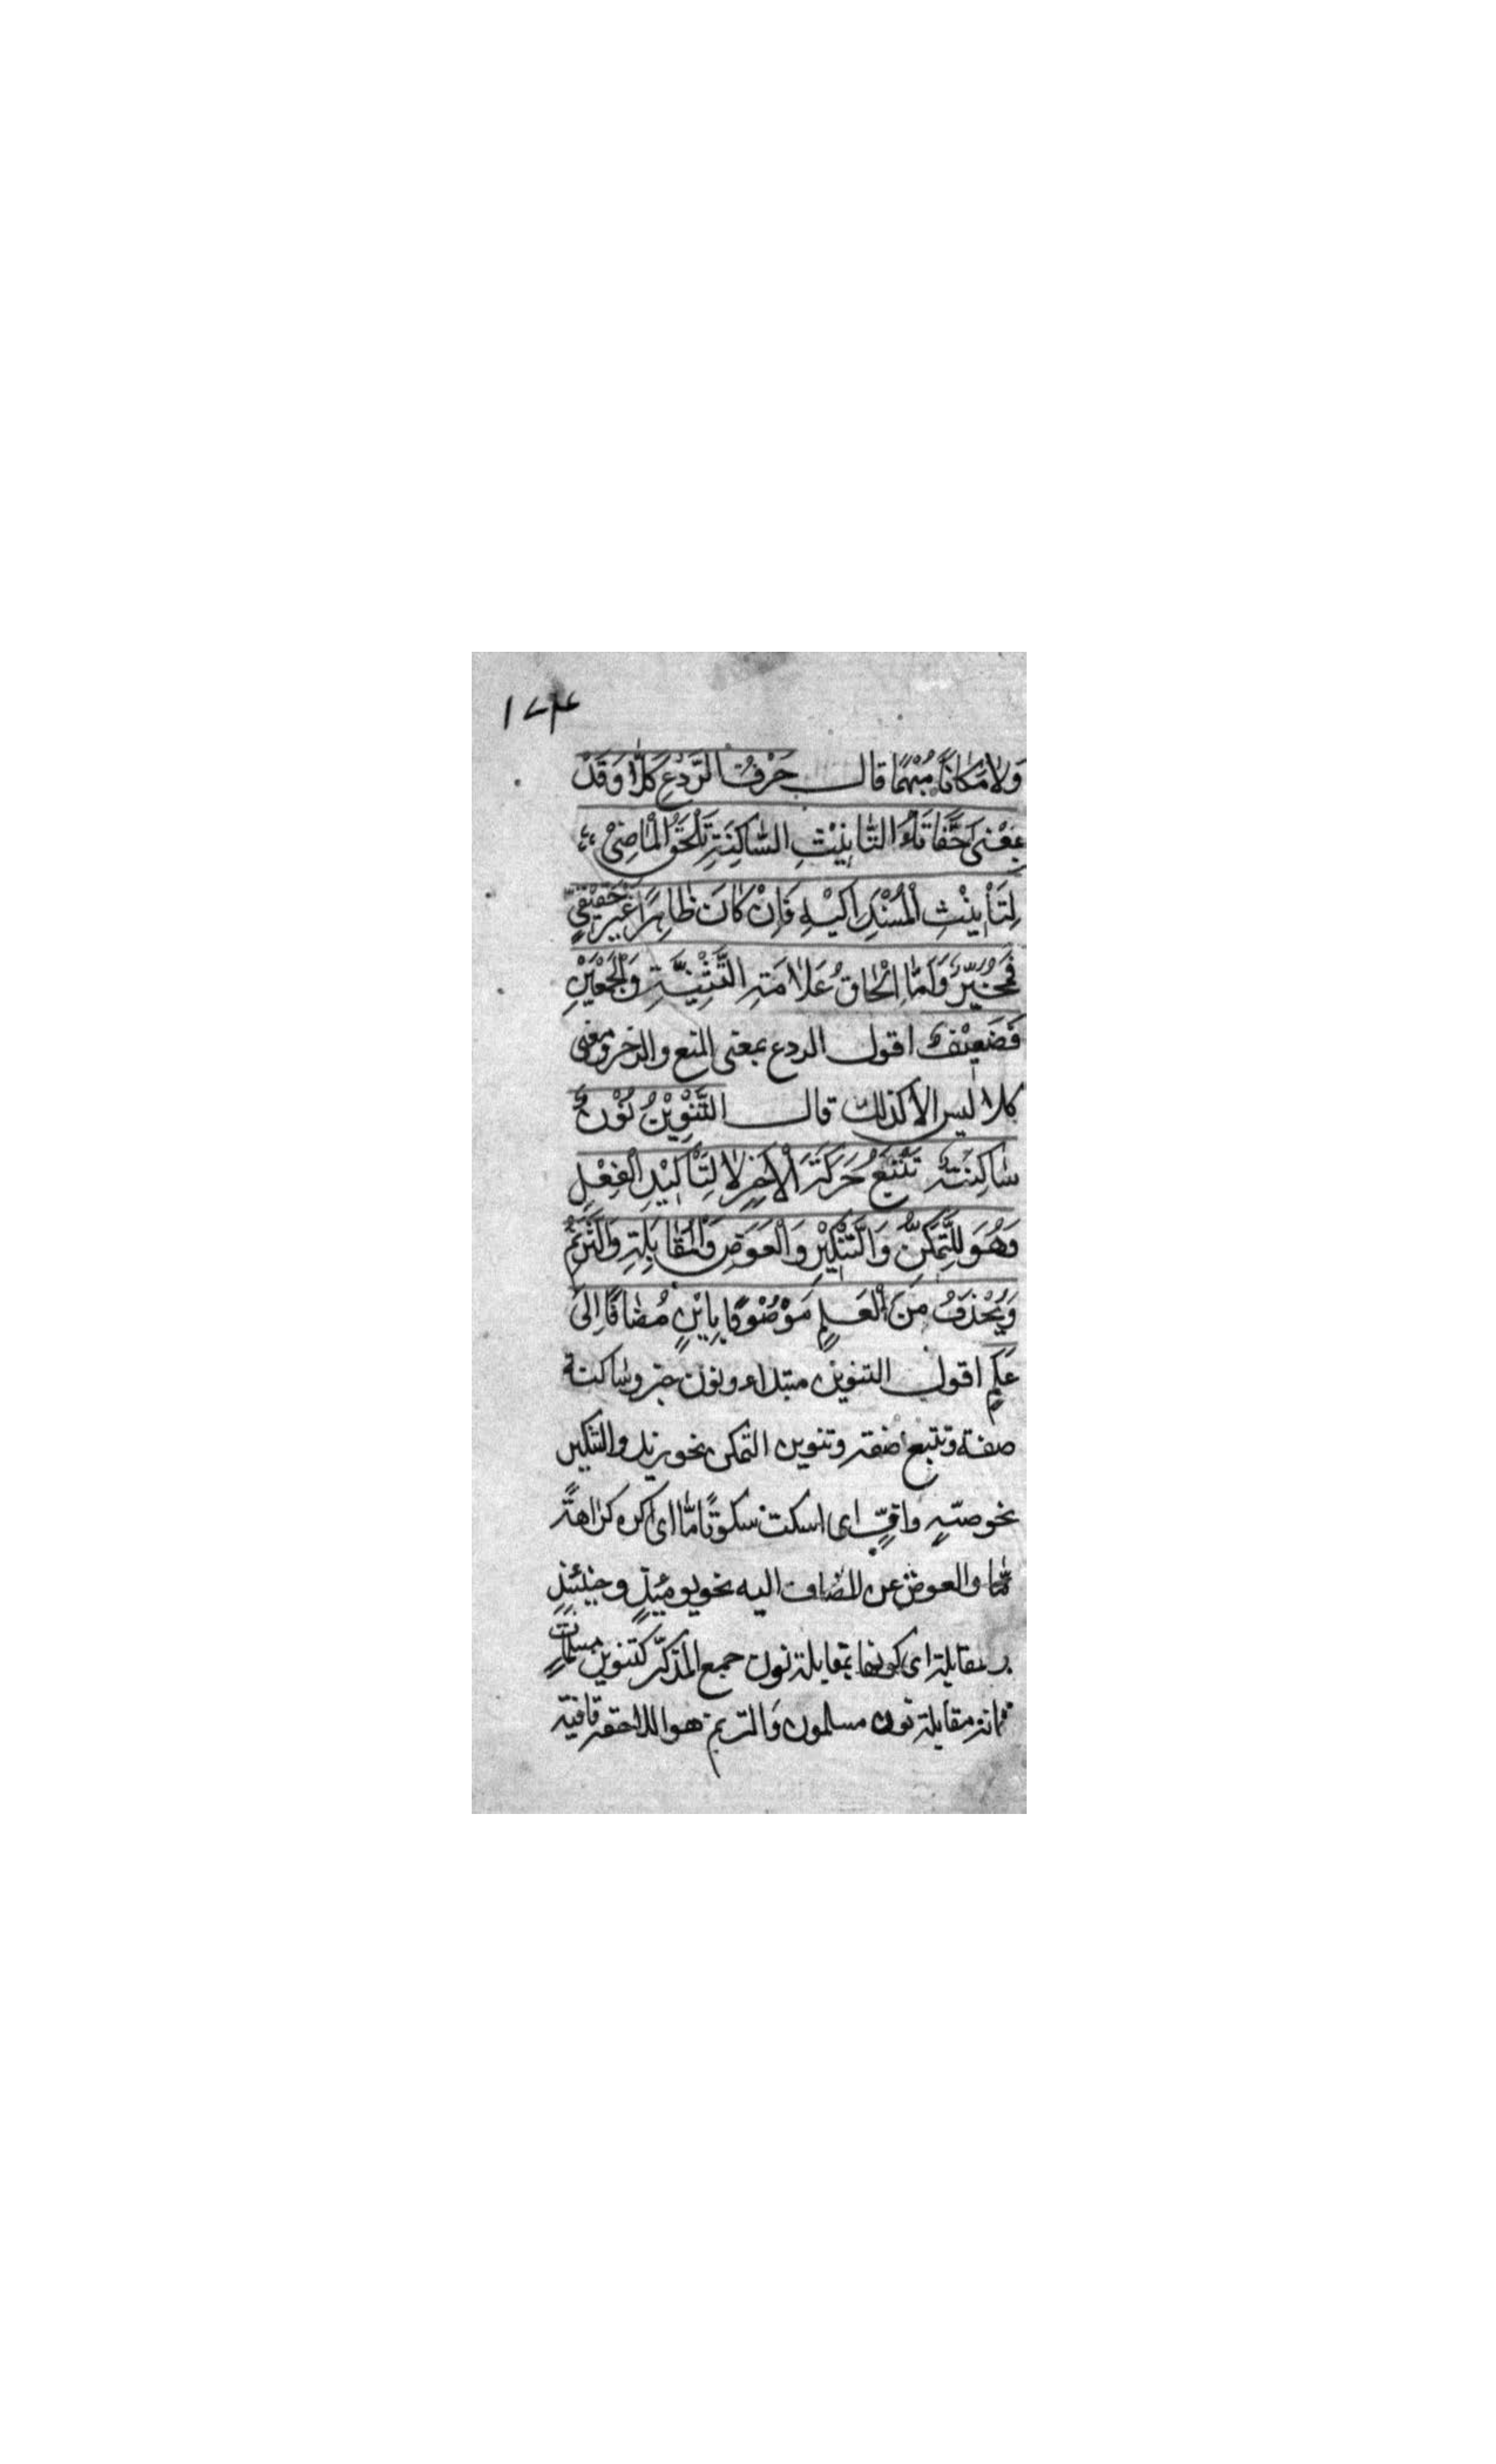 ١٧٤
وَلَا مَكَانًا مُبْهَمًا قال حَرْفُ الرَّدْعِ كَلَّا وَقَدْ
بِمَعْنَى حَقًّا تَاءُ التَّانِيْثِ السَّاكِنَةِ تَلْحَقُ الْمَاضِيْ
لِتَأْنِيْثِ الْمُسْنَدِ اِلَيْهِ فَاِنْ كَانَ ظَاهِرًا غَيْرَ حَقِيْقِيٍّ
فَمُخَيَّرٌ وَاَمَّا اِلْحَاقُ عَلَامَةِ التَّثْنِيَّةِ وَالْجَمْعَيْنِ
فَضَعِيْفٌ اقول الردع بمعنى المنع والزجر ومعنى
كلا ليس الا كذلك قال التَّنْوِيْنُ نُوْنٌ
سَاكِنَةٌ تَتْبَعُ حَرَكَةَ الْاٰخِرِ لَا لِتَأْكِيْدِ الْفِعْلِ
وَهُوَ لِلتَّمَكُّنِ وَالتَّنْكِيْرِ وَالْعَوَضِ وَالْمُقَابَلَةِ وَالتَّرَنُّمِ
وَيُحْذَفُ مِنَ الْعَلَمِ مَوْصُوْفًا بِابْنٍ مُضَافًا اِلَى
عَلَمٍ اقول التنوين مبتداء ونون خبر وساكنة
صفة وتتبع صفة وتنوين التمكن نحو زيد والتنكير
نحو صهٍ واڤٍ اى اسكت سكوتًا مّا اى اكره كراهةً
مّا والعوض عن المضاف اليه نحو يومئذٍ وحينئذٍ
مقابلة اى كونها بمقابلة نون جمع المذكّر كتنوين مسلماتٍ
فانه مقابلة نون مسلمون وَالترنم هو اللاحقة قافية